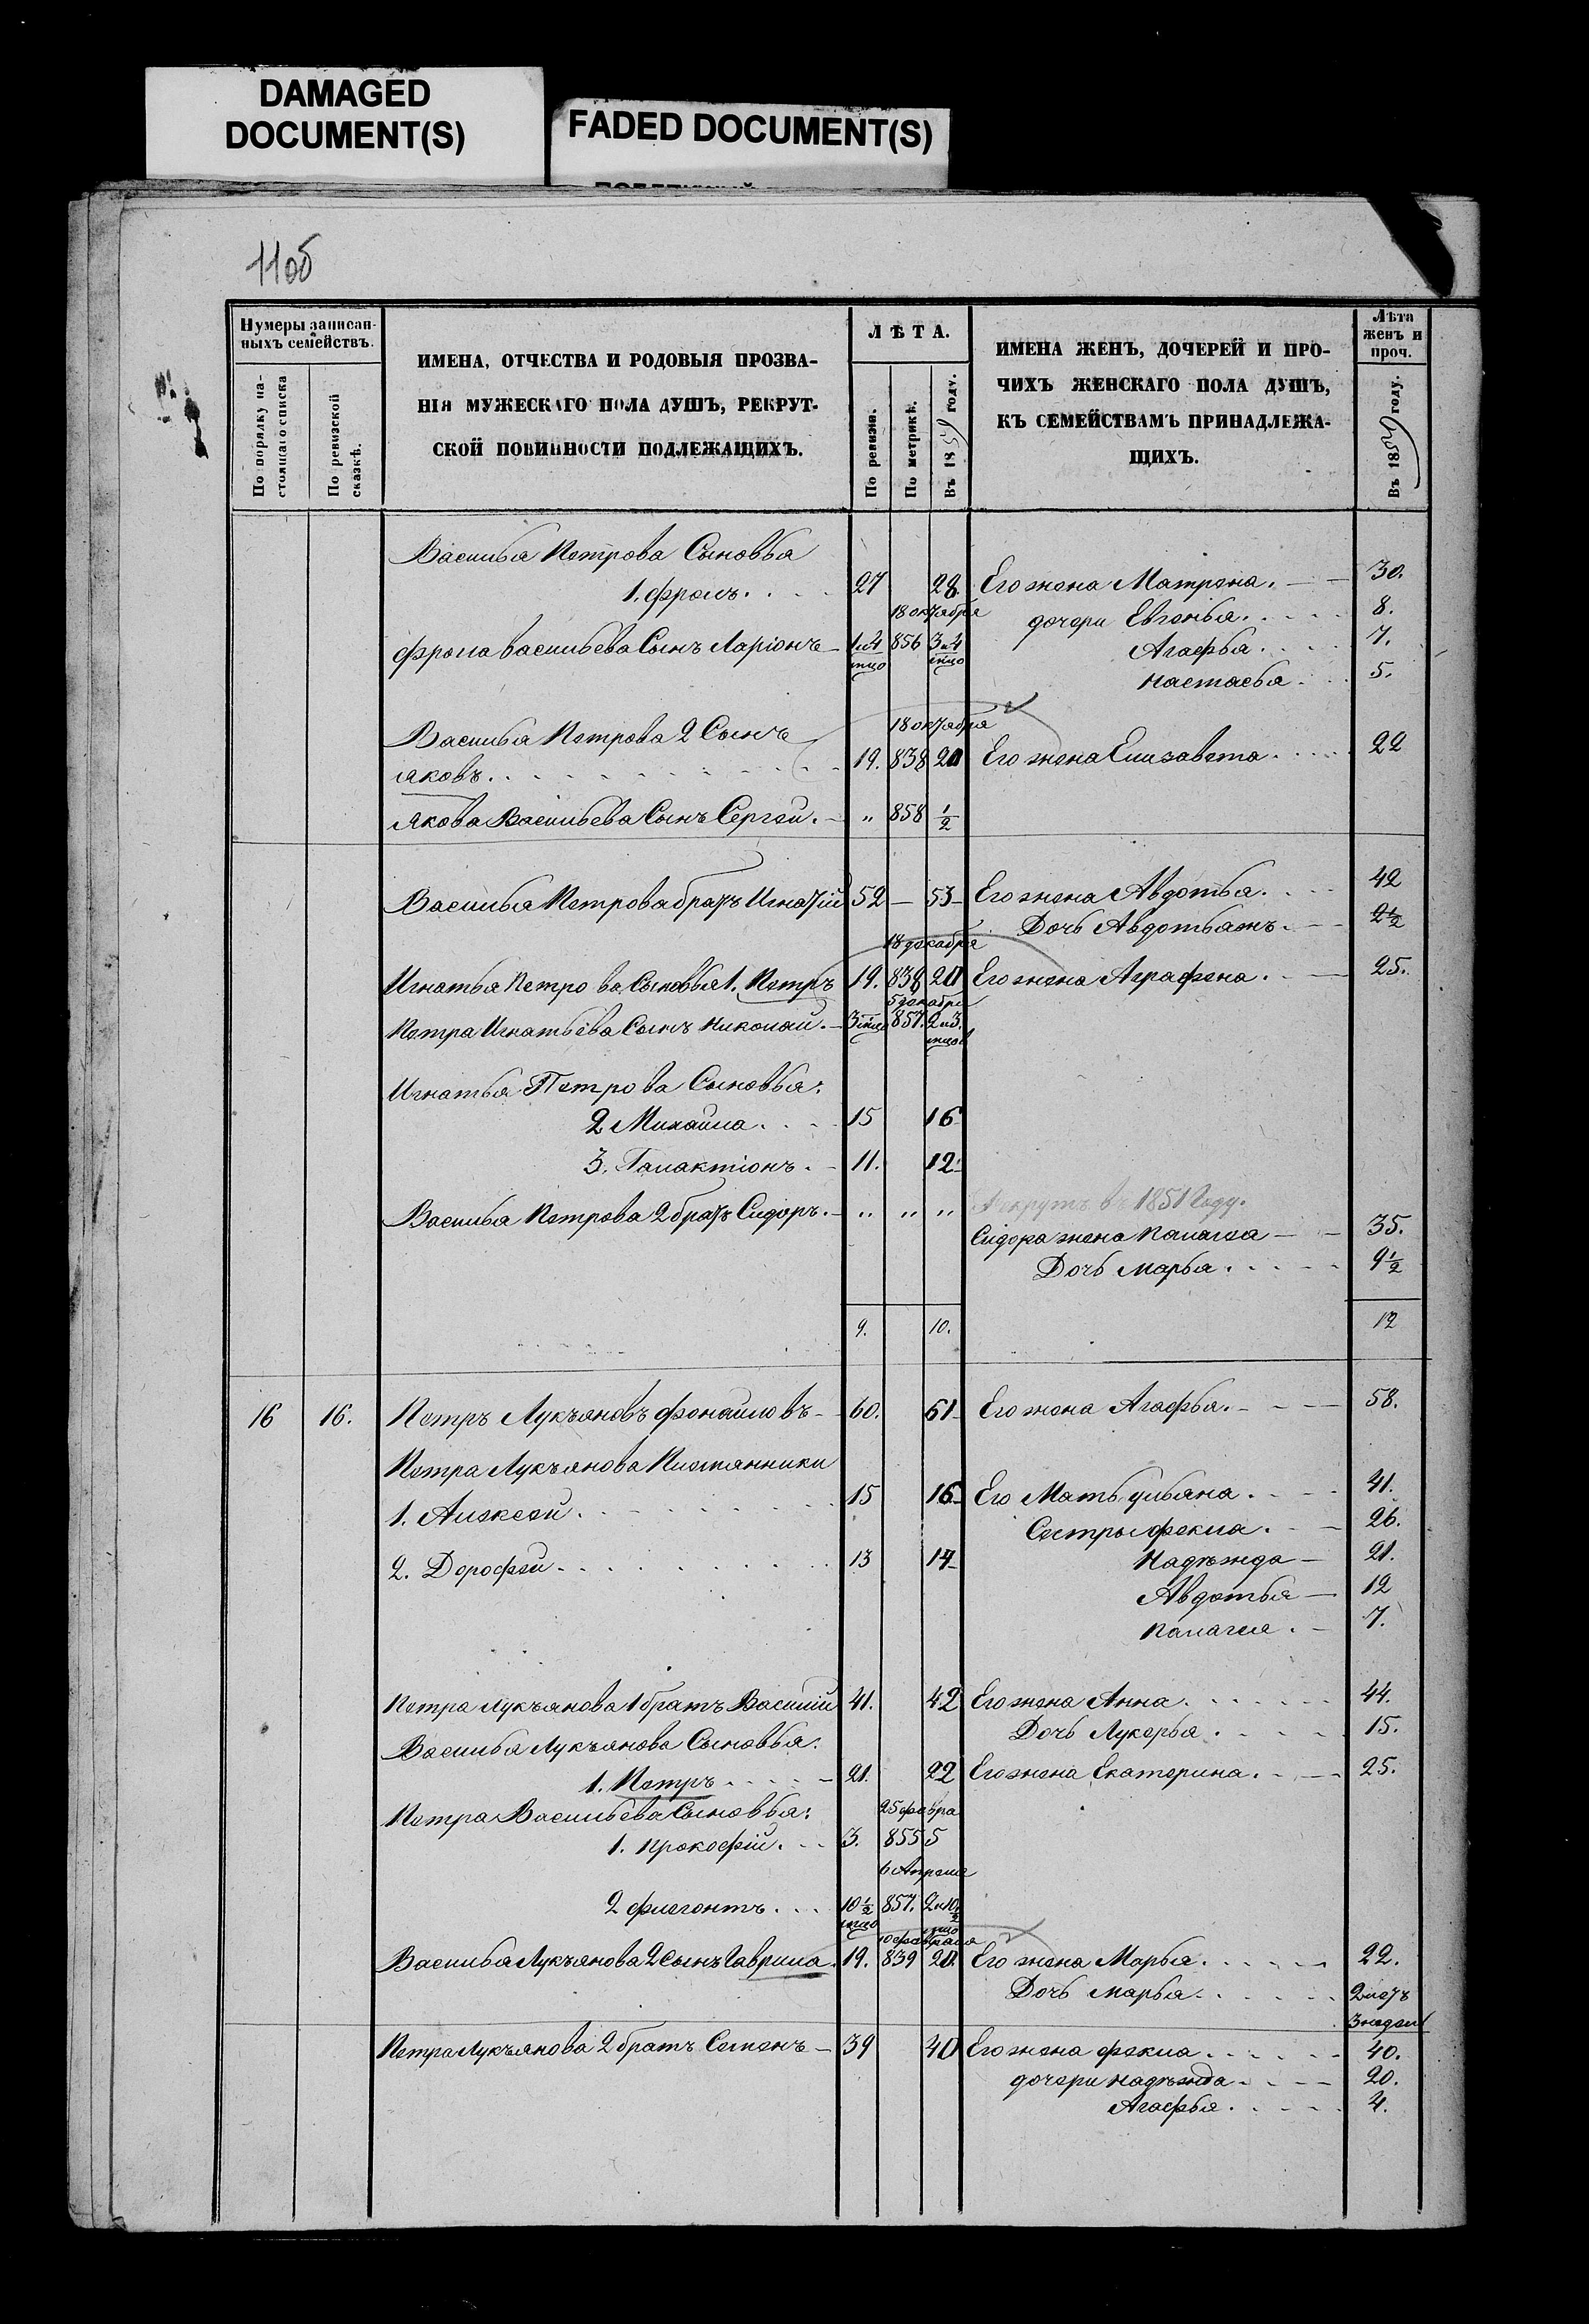 DAMAGED
DOCUMENT(S)
FADED DOCUMENT(S)
11об
Нумеры записан-
ныхъ семействъ.
По порядку на-
стоящаго списка
По ревизской
сказкѣ.
ИМЕНА, ОТЧЕСТВА И РОДОВЫЯ ПРОЗВА-
НІЯ МУЖЕСКАГО ПОЛА ДУШЪ, РЕКРУТ-
СКОЙ ПОВИННОСТИ ПОДЛЕЖАЩИХЪ.
ЛѢТА.
По ревизіи.
По метрикѣ.
Въ 1859 году.
ИМЕНА ЖЕНЪ, ДОЧЕРЕЙ И ПРО-
ЧИХЪ ЖЕНСКАГО ПОЛА ДУШЪ,
КЪ СЕМЕЙСТВАМЪ ПРИНАДЛЕЖА-
ЩИХЪ.
Лѣта
женъ и
проч.
Въ 1859 году.
Василья Петрова Сыновья
1. Фролъ. 27 28. Его жена Матрена. 30.
18 октября дочери Евгенья. 8.
Фрола Васильева Сынъ Ларіонъ 1 и 4 856 3 и 4 Агафья. 7.
мцо мцо Настасья. 5.
Василья Петрова 2 Сынъ 18 октября
Яковъ. 19. 838 20 Его жена Елизавета. 22
Якова Васильева Сынъ Сергей. " 858 1/2
Василья Петрова братъ Игнатій 52 — 53 Его жена Авдотья. 42
18 декабря Дочь Авдотья 2 1/2
Игнатья Петрова Сыновья 1. Петръ 19. 838 20 Его жена Аграфена. 25.
5 декабря
Петра Игнатьева Сынъ Николай. 3 мцо 857. 2 и 3. мцов
Игнатья Петрова Сыновья:
2 Михайла. 15 16
3. Галактіонъ. 11. 12.
Василья Петрова 2 братъ Сидоръ. " " " Рекрутъ въ 1851 году.
Сидора жена Палагея 35.
Дочь Марья. 9 1/2
9. 10. 12
16 16. Петръ Лукъяновъ Фонаиловъ 60. 61 Его жена Агафья. 58.
Петра Лукъянова Племянники
1. Алексей. 15 16 Его Мать Ульяна. 41.
Сестры Фекла. 26.
2. Дорофей. 13 14 Надежда 21.
Авдотья 12
Палагея. 7.
Петра Лукъянова 1 братъ Василій 41. 42 Его жена Анна. 44.
Василья Лукъянова Сыновья. Дочь Лукерья. 15.
1. Петръ 21. 22 Его жена Екатерина. 25.
Петра Васильева Сыновья: 25 февра
1. Прокофій. 3. 855 5
6 Апреля
2 Флегонтъ. 10 1/2 857. 2 и 10 1/2
мцо мцо
10 февраля
Василья Лукъянова 2 Сынъ Гаврила. 19. 839 20. Его жена Марья. 22.
Дочь Марья. 2 летъ
3 недели
Петра Лукъянова 2 братъ Семенъ 39 40 Его жена Фекла. 40.
дочери Надежда 20.
Агафья. 4.